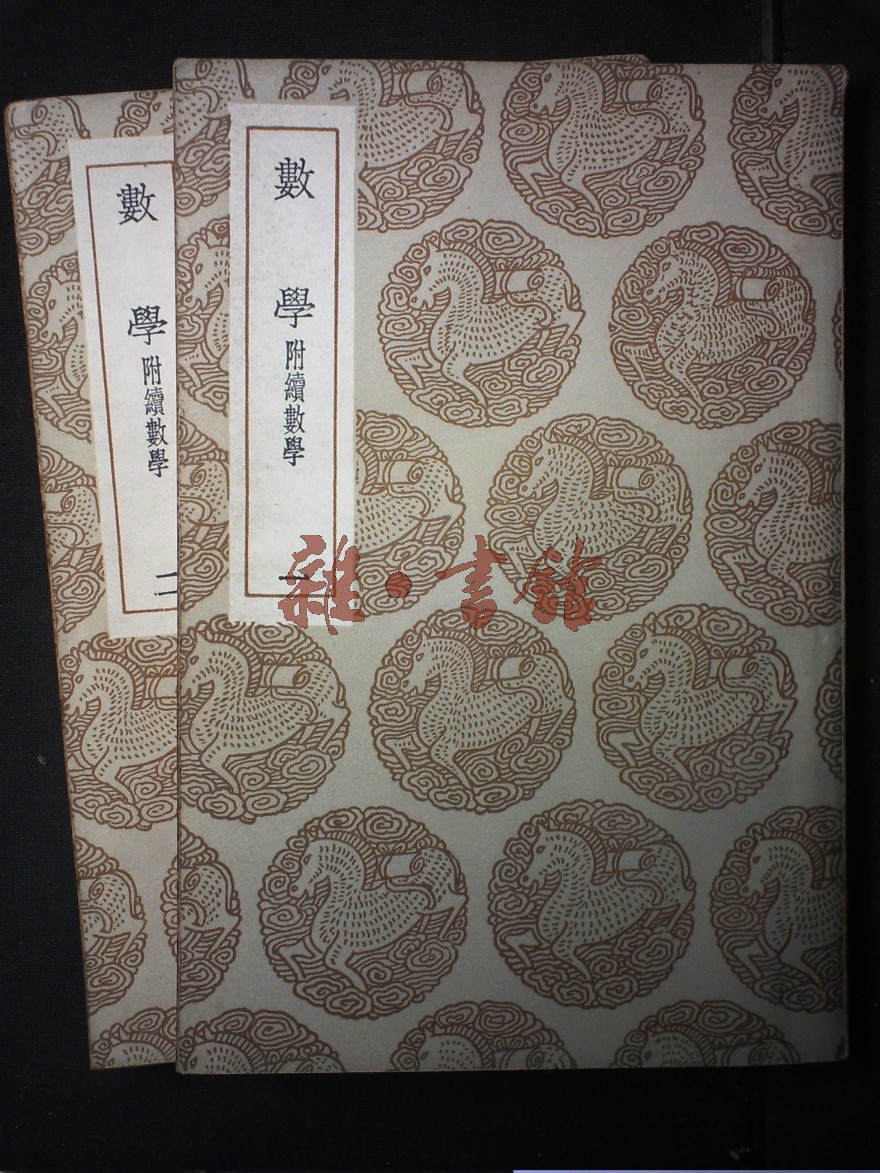 數學附續數學
一
數學附續數學
二
雜·書館